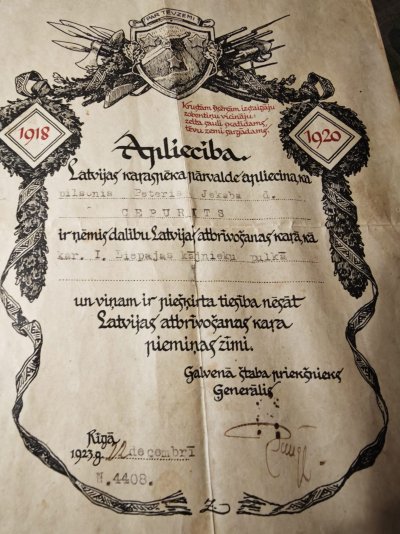 PAR TĒVZEMI
Kŗustām šķērsām izstaigāju
zobentiņu vicināju:
zelta sauli pražīdams,
tēvu zemi sargādams.
1918
1920
Apliecība.
Latvijas karaspēka pārvalde apliecina, ka
pilsonis Peteris Jekaba d.
CEPURITS
ir ņēmis dalību Latvijas atbrīvošanas karā, kā
kar. I. Liepajas kājnieku pulkā
un viņam ir piešķirta tiesība nēsāt
Latvijas atbrīvošanas kara
piemiņas zīmi.
Galvenā štaba priekšnieks
Generālis
Rīgā,
1923.g. 22 decembrī
N.4408.